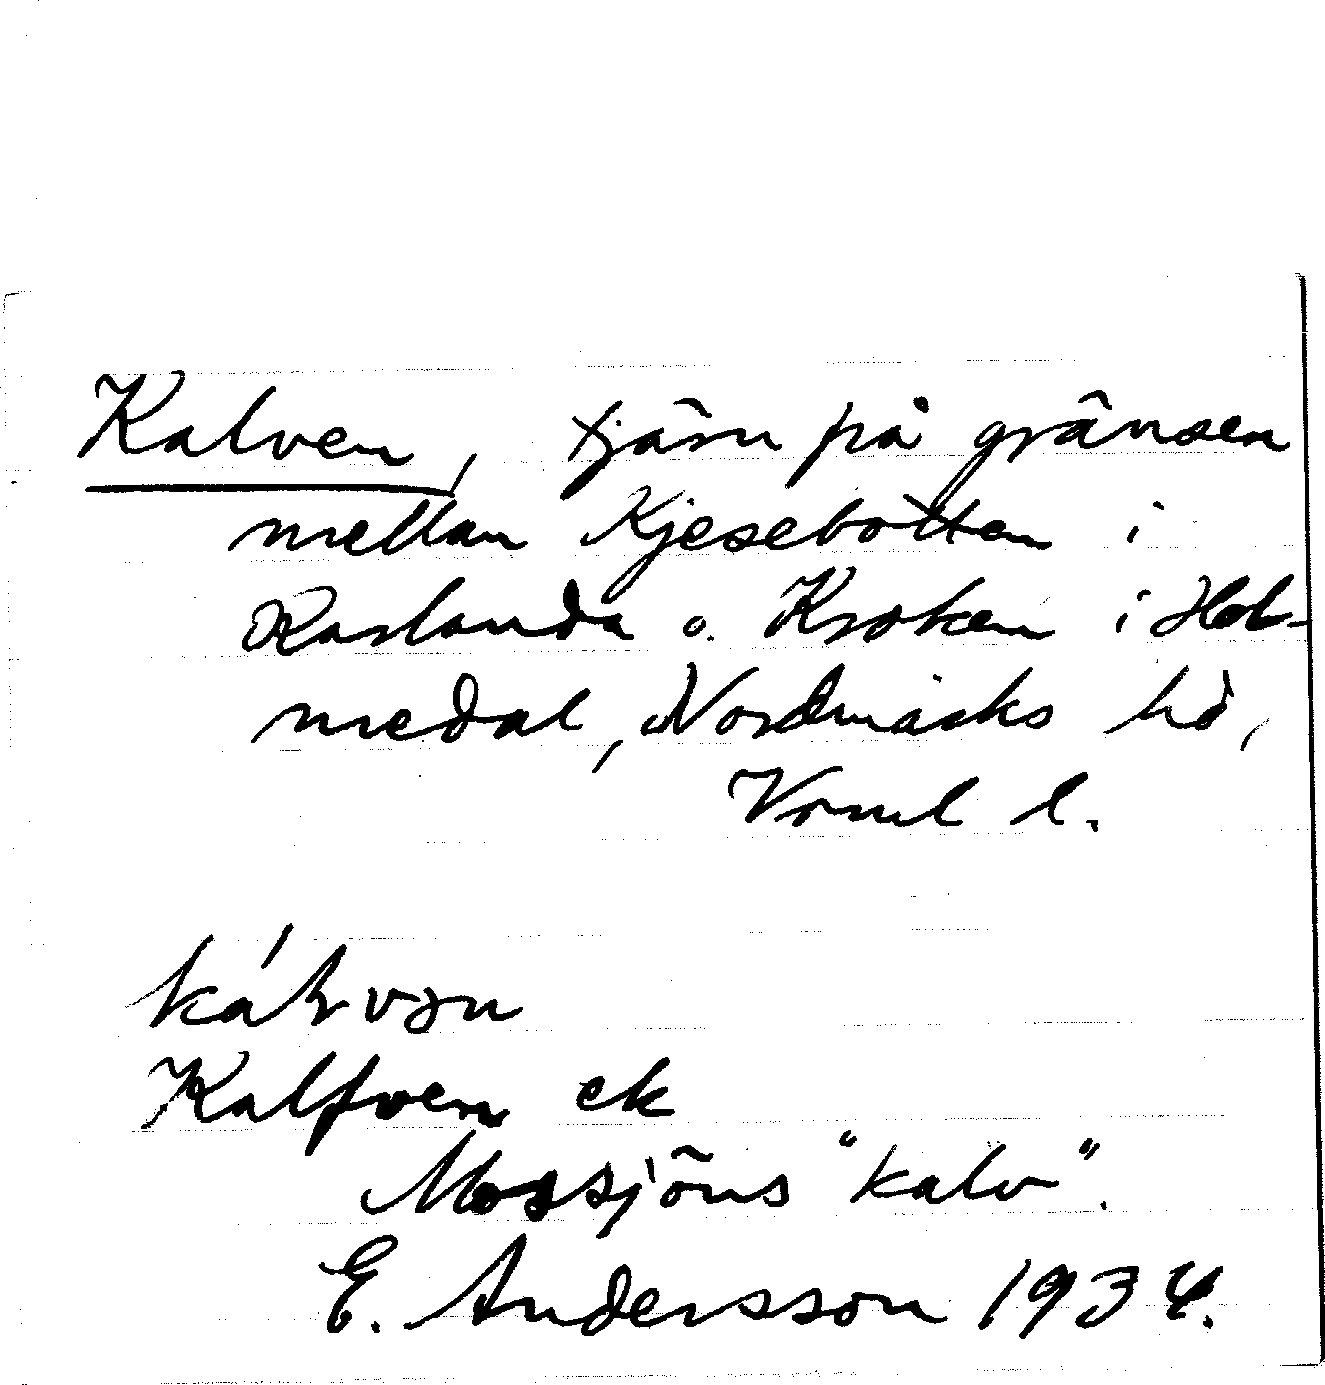 Kalven, tjärn på gränsen
mellan Kjesebotten i
Karlanda o. Kroken i Hol-
medal, Nordmarks hd,
Vrml l.
Kalfven ek
Mossjöns "kalv".
E. Andersson 1934.